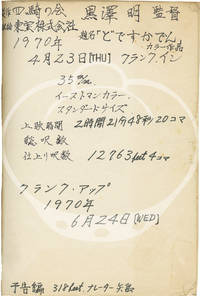 製作 四騎の会 黒澤明 監督
配給 東宝株式会社 題名「どですかでん」
1970年 カラー作品
4月23日[THU] クランク・イン
35㎜
イーストマンカラー.
スタンダードサイズ
上映時間 2時間21分48秒20コマ
総呎数
仕上り呎数 12763feet4コマ
クランク・アップ
1970年
6月24日[WED]
予告編 318feet ナレーター